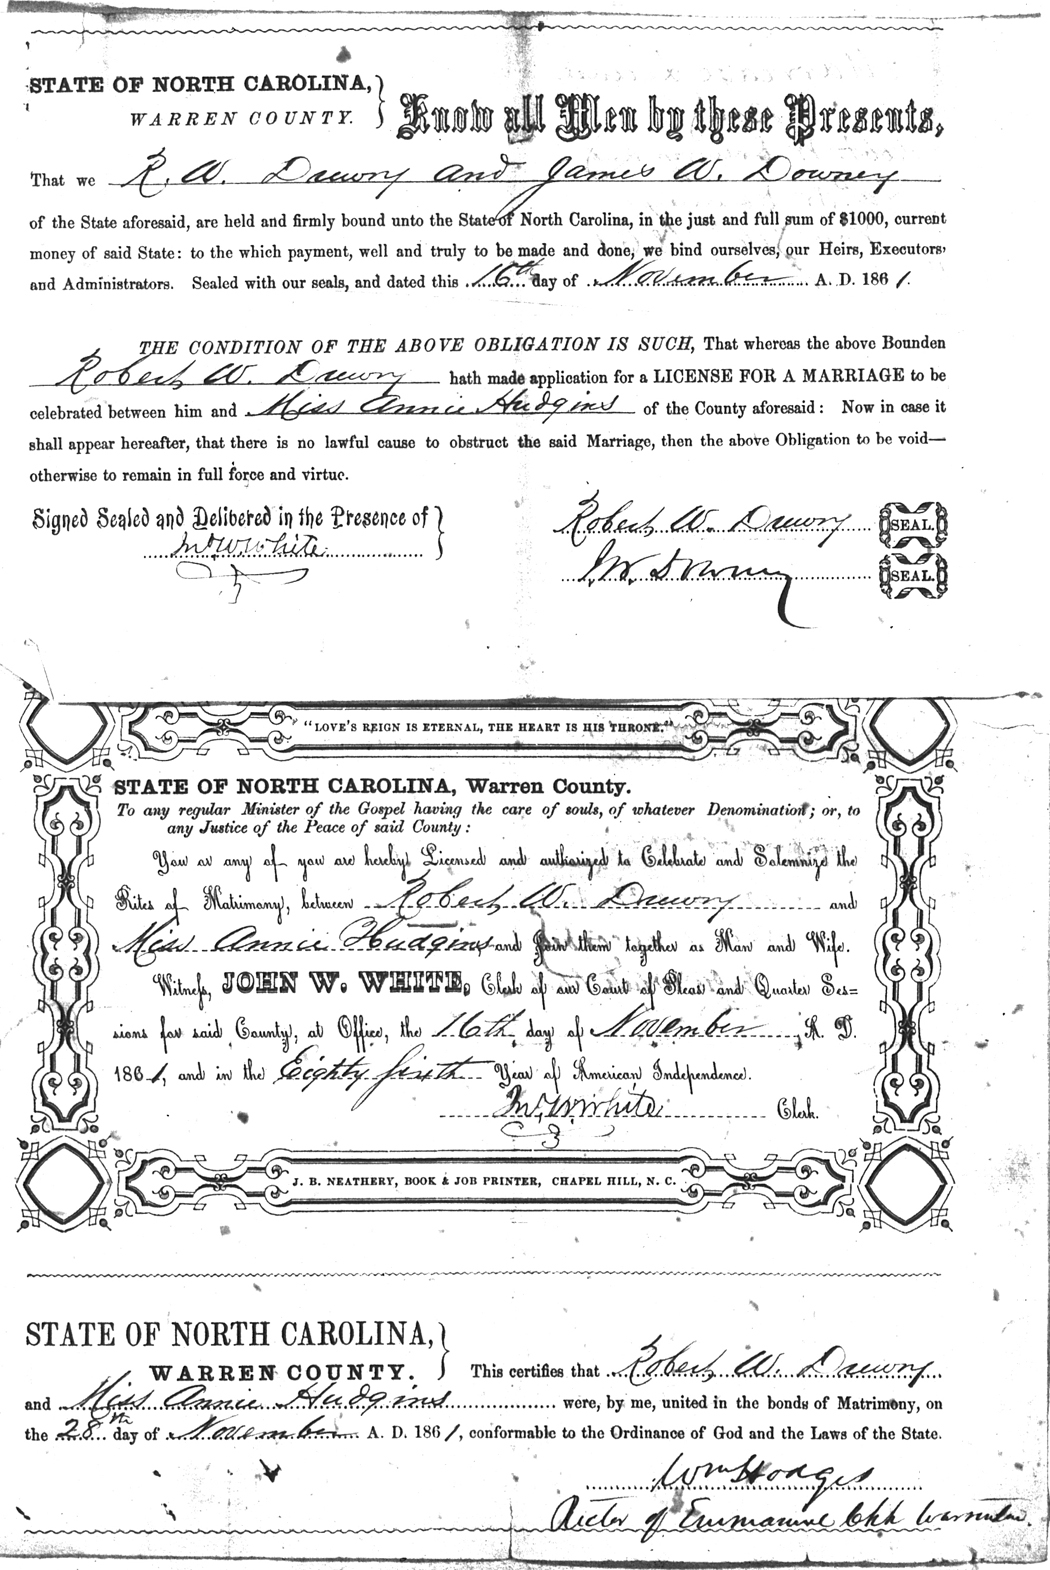 STATE OF NORTH CAROLINA,
WARREN COUNTY.
Know all Men by these Presents,
That we R. W. Drewry and James W. Downey
of the State aforesaid, are held and firmly bound unto the State of North Carolina, in the just and full sum of $1000, current
money of said State: to the which payment, well and truly to be made and done, we bind ourselves, our Heirs, Executors,
and Administrators. Sealed with our seals, and dated this 16th day of November A. D. 1861.
THE CONDITION OF THE ABOVE OBLIGATION IS SUCH, That whereas the above Bounden
Robert W. Drewry hath made application for a LICENSE FOR A MARRIAGE to be
celebrated between him and Miss Annie Hudgins of the County aforesaid: Now in case it
shall appear hereafter, that there is no lawful cause to obstruct the said Marriage, then the above Obligation to be void—
otherwise to remain in full force and virtue.
Signed Sealed and Delibered in the Presence of
Jno W White
Robert W. Drewry SEAL.
J. W. Downey SEAL.
"LOVE'S REIGN IS ETERNAL, THE HEART IS HIS THRONE."
STATE OF NORTH CAROLINA, Warren County.
To any regular Minister of the Gospel having the care of souls, of whatever Denomination; or, to
any Justice of the Peace of said County:
You or any of you are hereby Licensed and authorized to Celebrate and Solemnize the
Rites of Matrimony, between Robert W. Drewry and
Miss Annie Hudgins and Join them together as Man and Wife.
Witness, JOHN W. WHITE, Clerk of our Court of Pleas and Quarter Ses=
sions for said County, at Office, the 16th day of November, A. D.
1861, and in the Eighty sixth Year of American Independence.
Jno. W White Clerk.
J. B. NEATHERY, BOOK & JOB PRINTER, CHAPEL HILL, N. C.
STATE OF NORTH CAROLINA,
WARREN COUNTY.
This certifies that Robert W. Drewry
and Miss Annie Hudgins were, by me, united in the bonds of Matrimony, on
the 28th day of November A. D. 1861, conformable to the Ordinance of God and the Laws of the State.
Wm Hodges
Rector of Emmanuel Chh Warrenton.